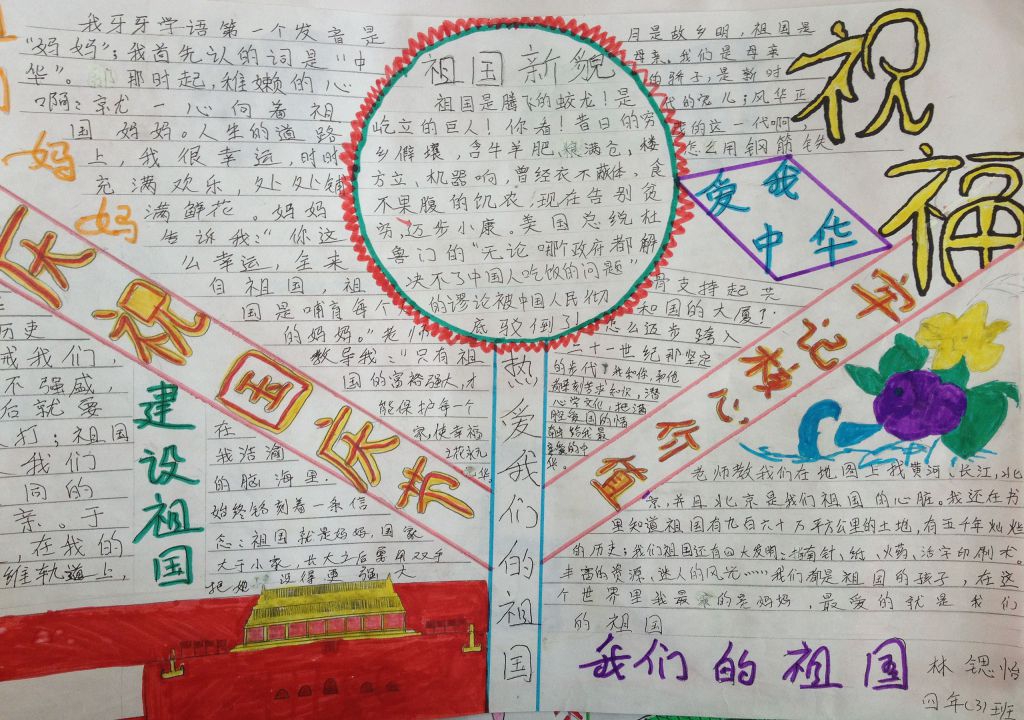 我牙牙学语第一个发音是
"妈妈";我首先认的词是"中
华"。那时起,稚嫩的心
一心向着祖
国妈妈。人生的道路
上,我很幸运,时时
充满欢乐,处处铺
满鲜花。妈妈
告诉我:"你这
么幸运,全来
自祖国,祖
国是哺育每个
的妈妈。"老师
教导我:"只有祖
国的富裕强大,才
能保护每一个
家,使幸福
花永久
妈
妈
祖国新貌
祖国是腾飞的蛟龙!是
屹立的巨人!你看!昔日的穷
乡僻壤,含牛羊肥,粮满仓,楼
方立、机器响,曾经衣不蔽体,食
不果腹的饥农,现在告别贫
穷,迈步小康。美国总统杜
鲁门的"无论哪个政府都解
决不了中国人吃饭的问题"
的谬论被中国人民彻
底驳倒了!
月是故乡明,祖国是
母亲。我们是母亲
的骄子,是新时
代的宠儿;风华正
的这一代啊,
怎么用钢筋铁
骨支持起共
和国的大厦?
怎么迈步跨入
二十一世纪那坚定
祝
福
爱我
中华
庆祝国庆节
值
价
记
字
历史
戒我们,
不强盛,
后就要
打;祖国
我们
同的
亲。于
,在我的
维轨道上,
建
设
祖
国
在
我浩瀚
的脑海里,
始终铭刻着一条信
念:祖国就是妈妈,国家
大于小家,长大之后要用双手
把她 得更强大
热
爱
我
们
的
祖
国
老师教我们在地图上找黄河、长江,北
京,并且北京是我们祖国的心脏。我还在书
里知道祖国有九百六十万平方公里的土地,有五千年灿烂
的历史;我们祖国还有四大发明:指南针,纸、火药、活字印刷术。
丰富的资源、迷人的风光……我们都是祖国的孩子,在这
个世界里我最亲的是妈妈,最爱的就是我们
的祖国
我们的祖国
林锶怡
四年(3)班